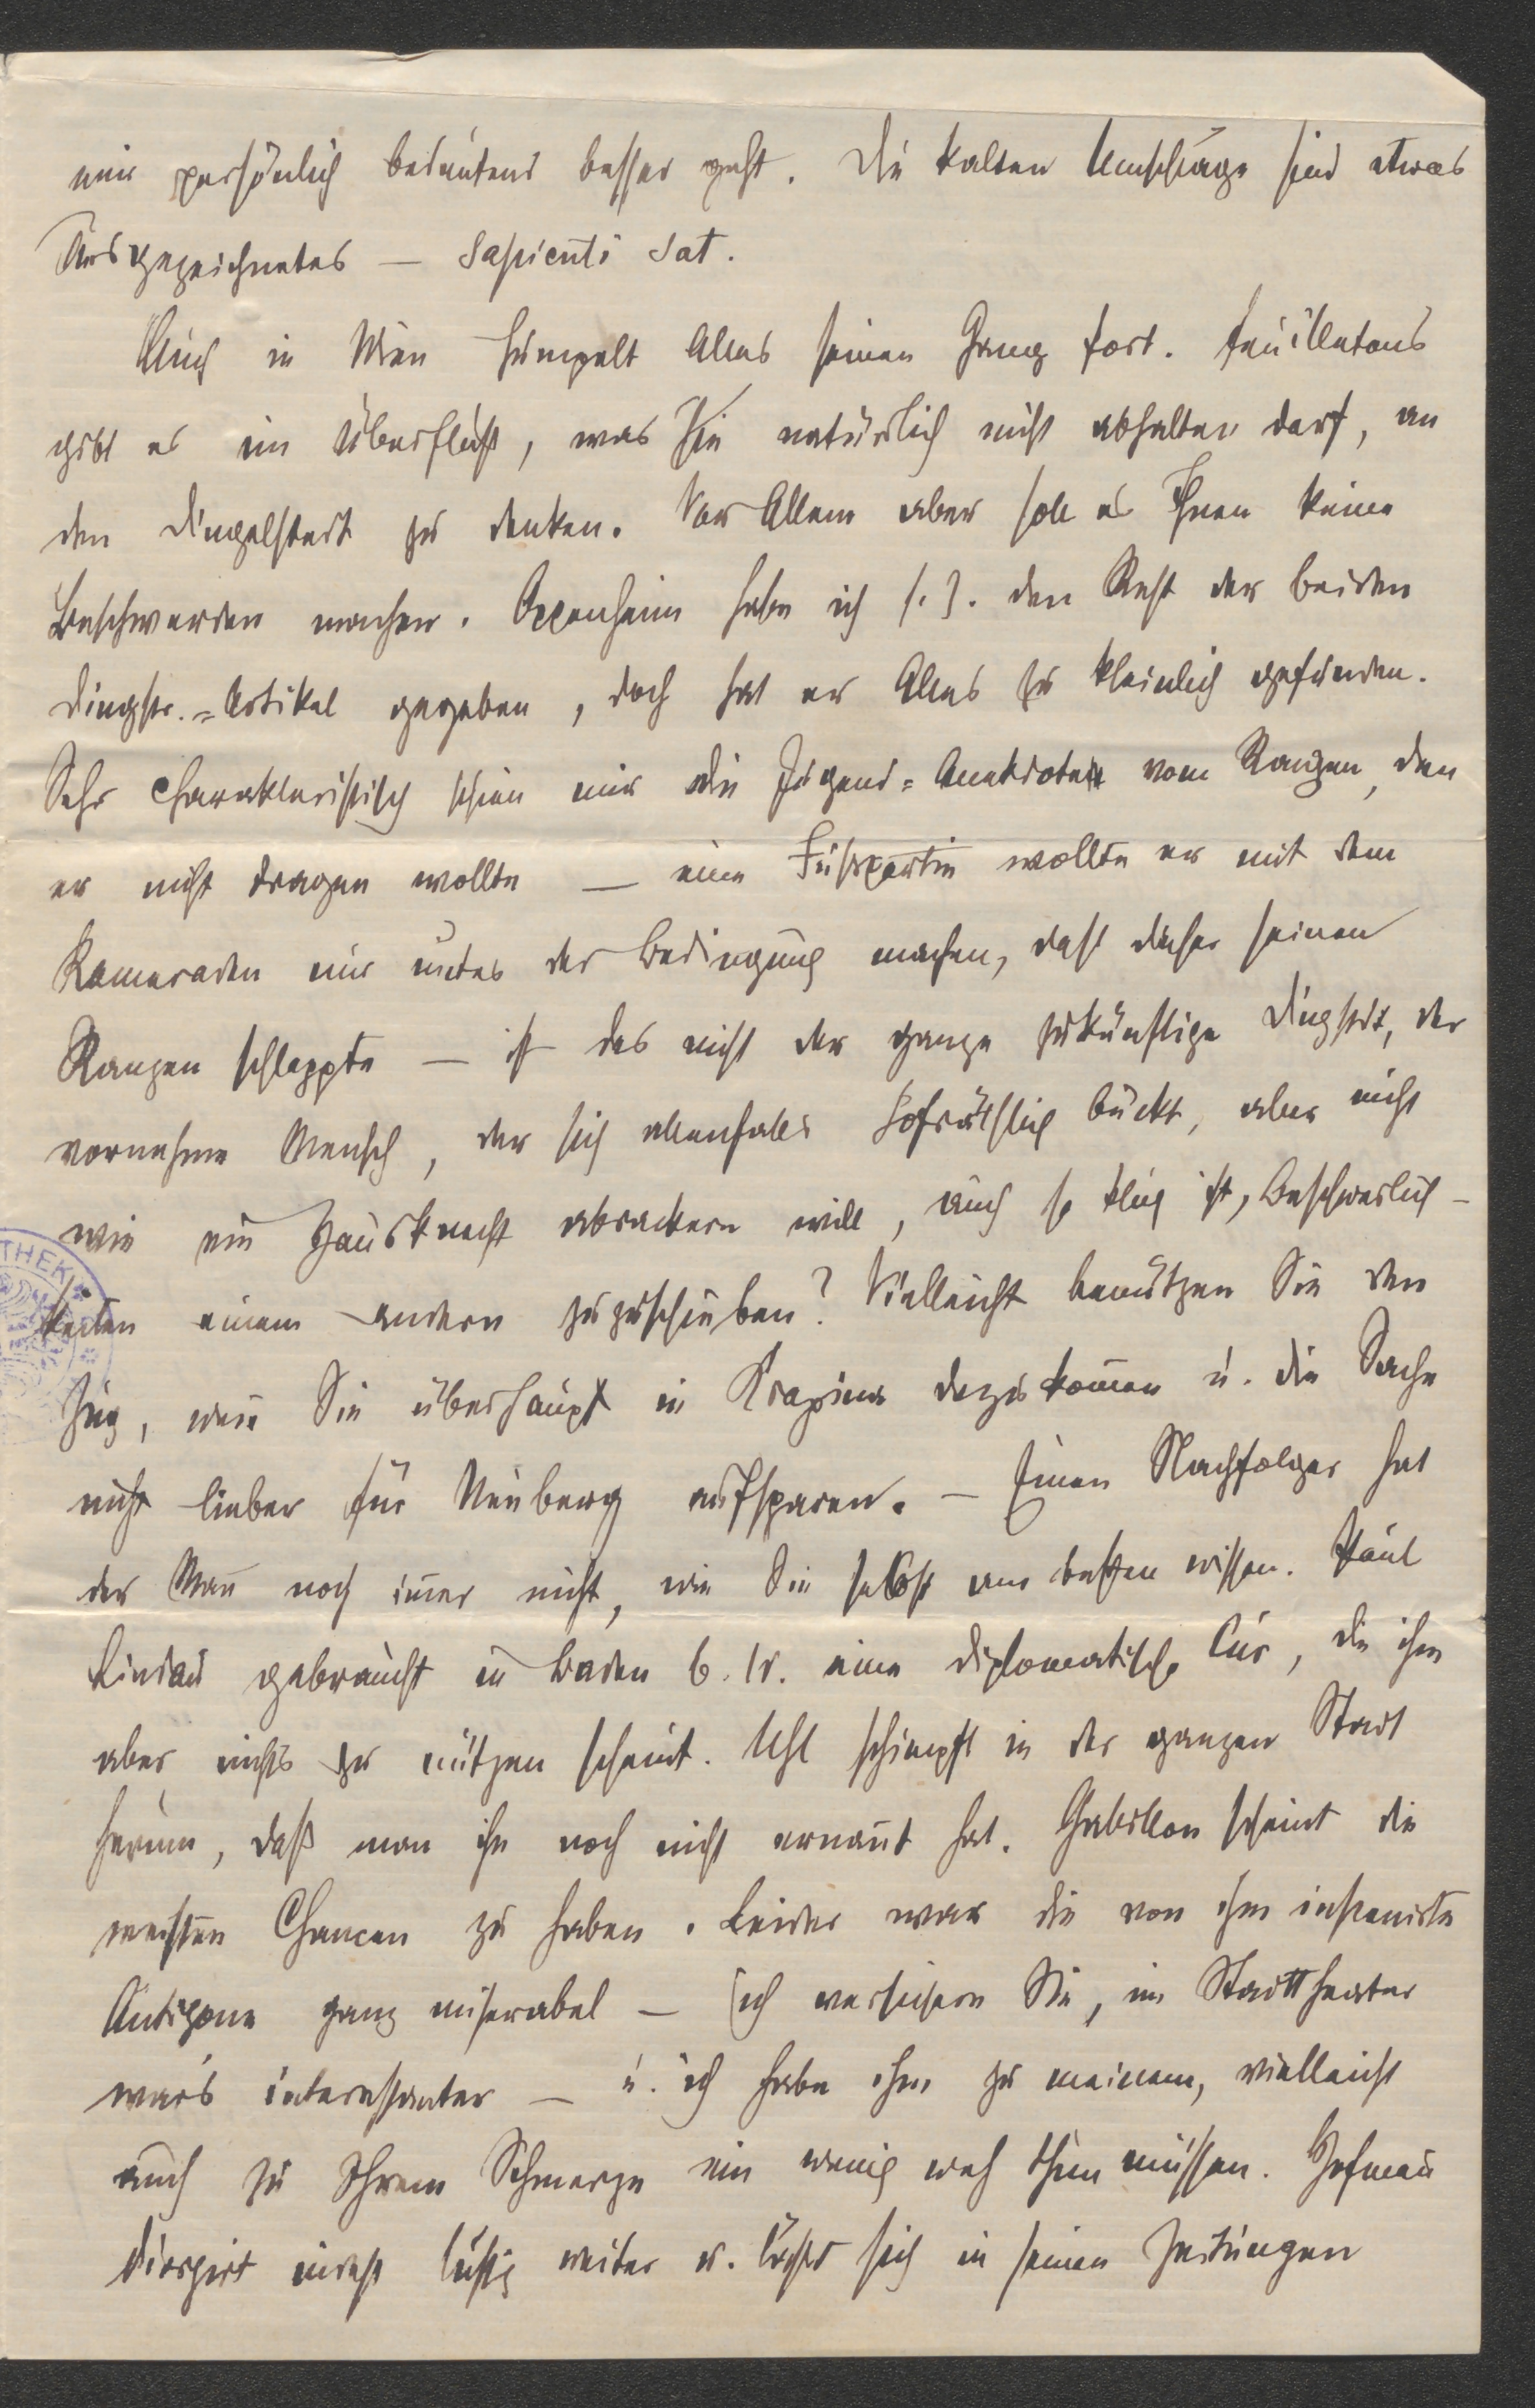 mir persönlich bedeutend besser geht. Die kalten Umschläge sind etwas
Ausgezeichnetes — Sapienti sat.
Auch in Wien humpelt Alles seinen Gang fort. Feuilletons
gibt es im Überfluß, was Sie natürlich nicht abhalten darf, an
den Dingelstedt zu denken. Vor Allem aber soll es Ihnen keine
Beschwerden machen. Oppenheim habe ich s. Z. den Rest der beiden
Dingst.-Artikel gegeben, doch hat er Alles zu kleinlich gefunden.
Sehr charakteristisch schien mir die Jugend-Anekdote vom Ranzen, den
er nicht tragen wollte — eine Fußpartie wollte er mit dem
Kameraden nur unter der Bedingung machen, daß dieser seinen
Ranzen schleppte — ist das nicht der ganze zukünftige Dingstdt, der
vornehme Mensch, der sich allenfalls hofräthlich bückt, aber nicht
wie ein Hausknecht abrackern will, auch so klug ist, Beschwerlich-
keiten einem andern zuzuschieben? Vielleicht benützen Sie den
Zug, wenn Sie überhaupt in Krapina dazu kom̄en u. die Sache
nicht lieber für Neuberg aufsparen. — Einen Nachfolger hat
der Man̄ noch im̄er nicht, wie Sie selbst am besten wissen. Paul
Lindau gebraucht in Baden b. W. eine diplomatische Cur, die ihm
aber nichts zu nützen scheint. Uhl schimpft in der ganzen Stadt
herum, daß man ihn noch nicht ernan̄t hat. Gabillon scheint die
meisten Chancen zu haben. Leider war die von ihm inscenirte
Antigone ganz miserabel — ich versichere Sie, im Stadttheater
war's interessanter — u. ich habe ihm zu meinem, vielleicht
auch zu Ihrem Schmerze ein wenig weh thun müssen. Hofman̄
dirigirt indeß lustig weiter u. läßt sich in seinen Zeitungen
THEK